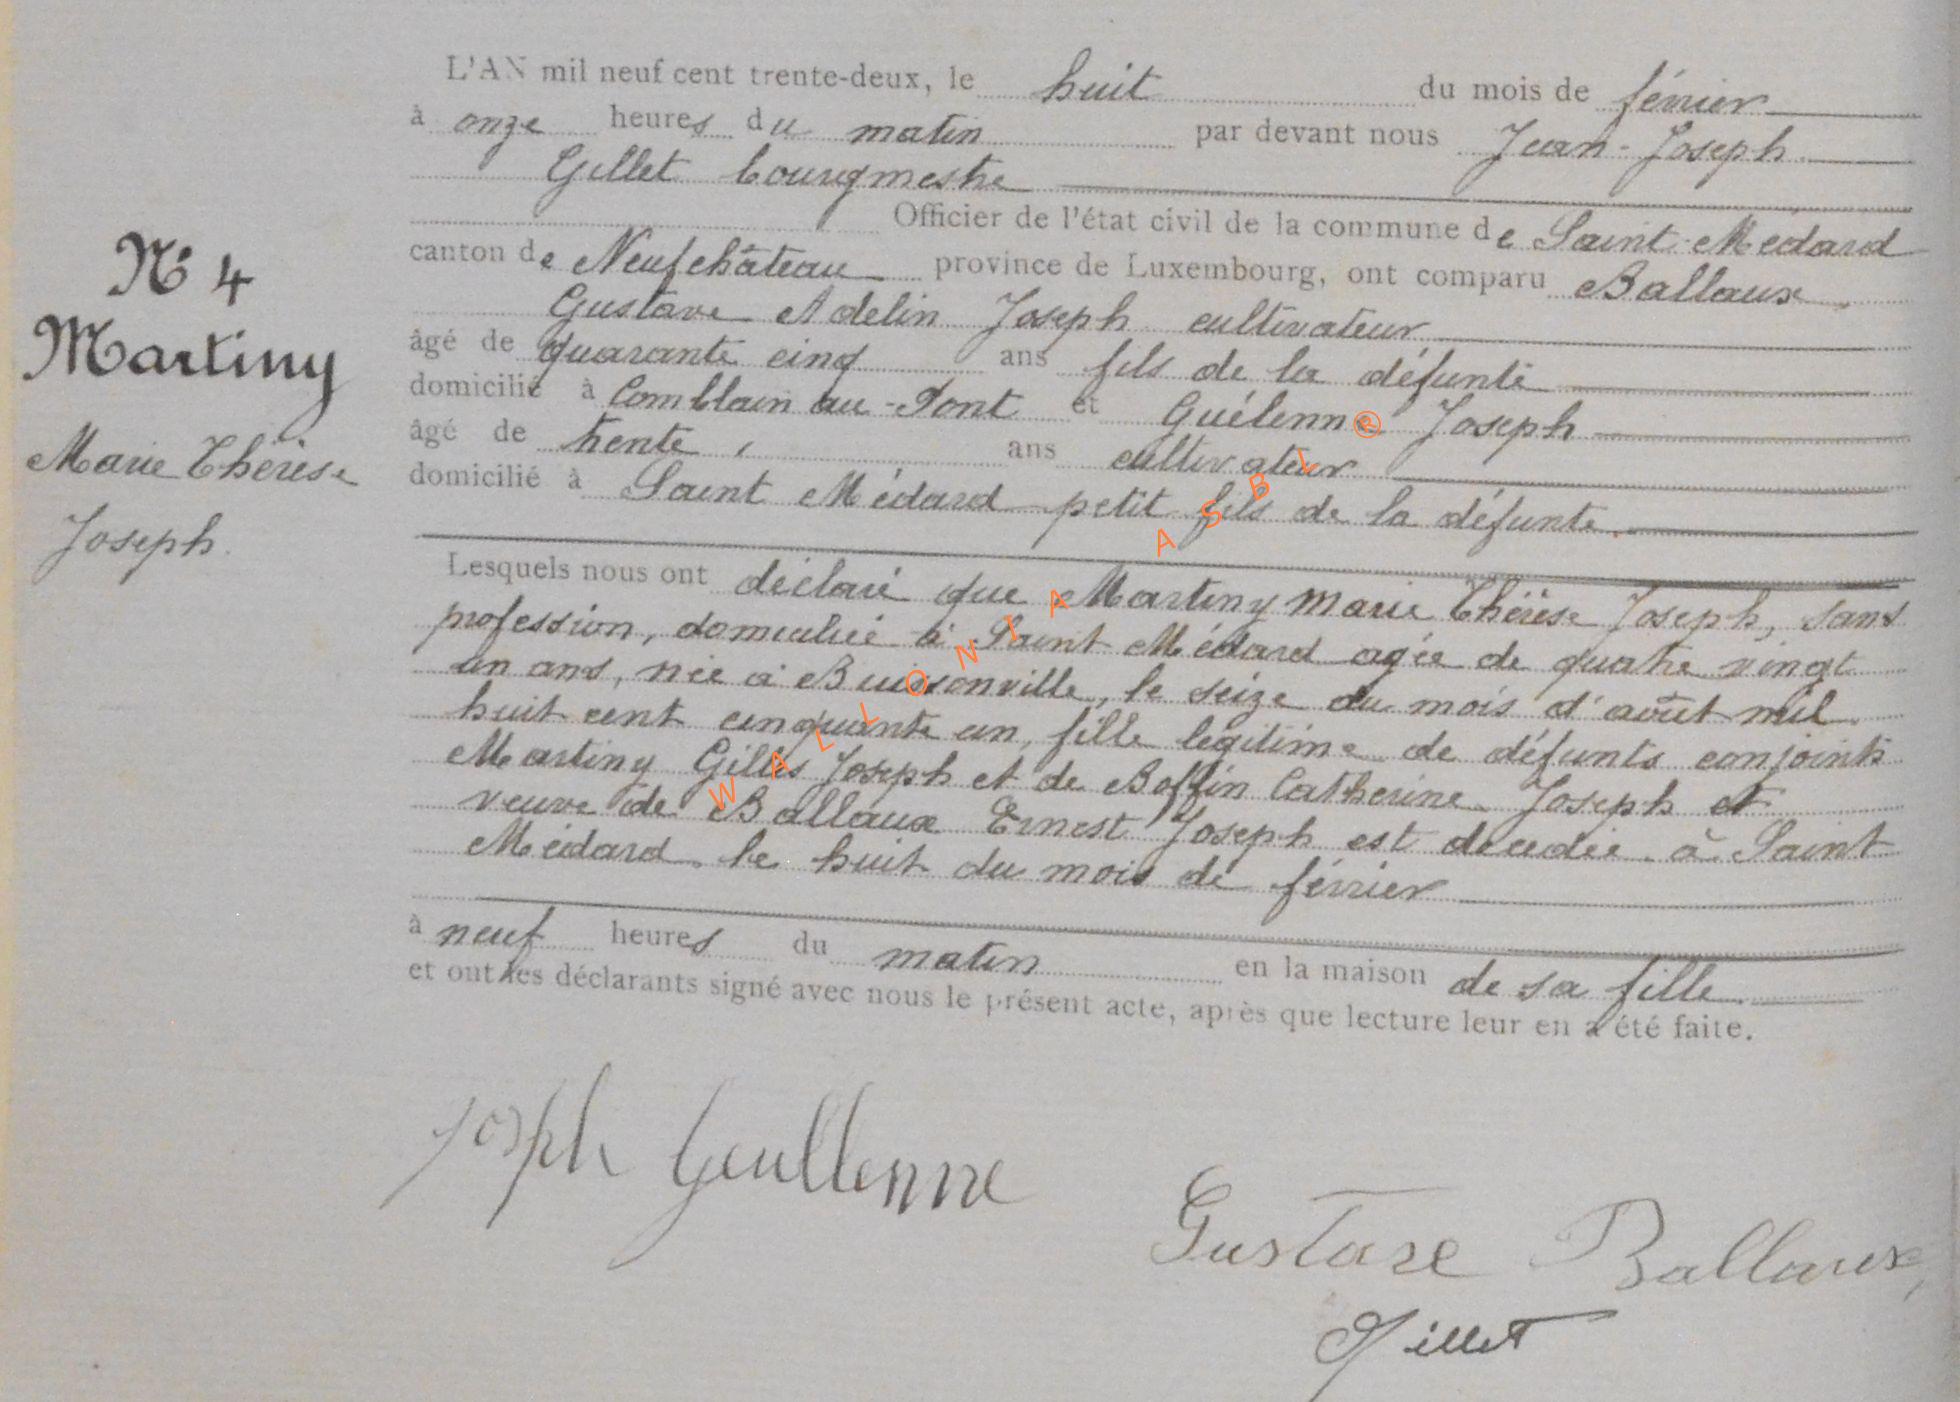 N° 4
Martiny
Marie Thérèse
Joseph
L'AN mil neuf cent trente-deux, le huit du mois de février
à onze heures du matin par devant nous Jean-Joseph
Gillet bourgmestre
Officier de l'état civil de la commune de Saint-Médard
canton de Neufchâteau province de Luxembourg, ont comparu Ballaux
Gustave Adelin Joseph cultivateur
âgé de quarante cinq ans fils de la défunte
domicilié à Comblain au-Pont et Guélenne Joseph
âgé de trente, ans cultivateur
domicilié à Saint Médard petit fils de la défunte.
Lesquels nous ont déclaré que Martiny Marie Thérèse Joseph, sans
profession, domiciliée à Saint Médard agée de quatre vingt
un ans, née à Buissonville, le seize du mois d'août mil
huit cent cinquante un, fille légitime de défunts conjoints
Martiny Gilles Joseph et de Boffin Catherine Joseph et
veuve de Ballaux Ernest Joseph est décédée à Saint
Médard le huit du mois de février
à neuf heures du matin en la maison de sa fille
et ont les déclarants signé avec nous le présent acte, après que lecture leur en a été faite.
Joseph Guellenne
Gustave Ballaux
Gillet
WALLONIA ASBL®